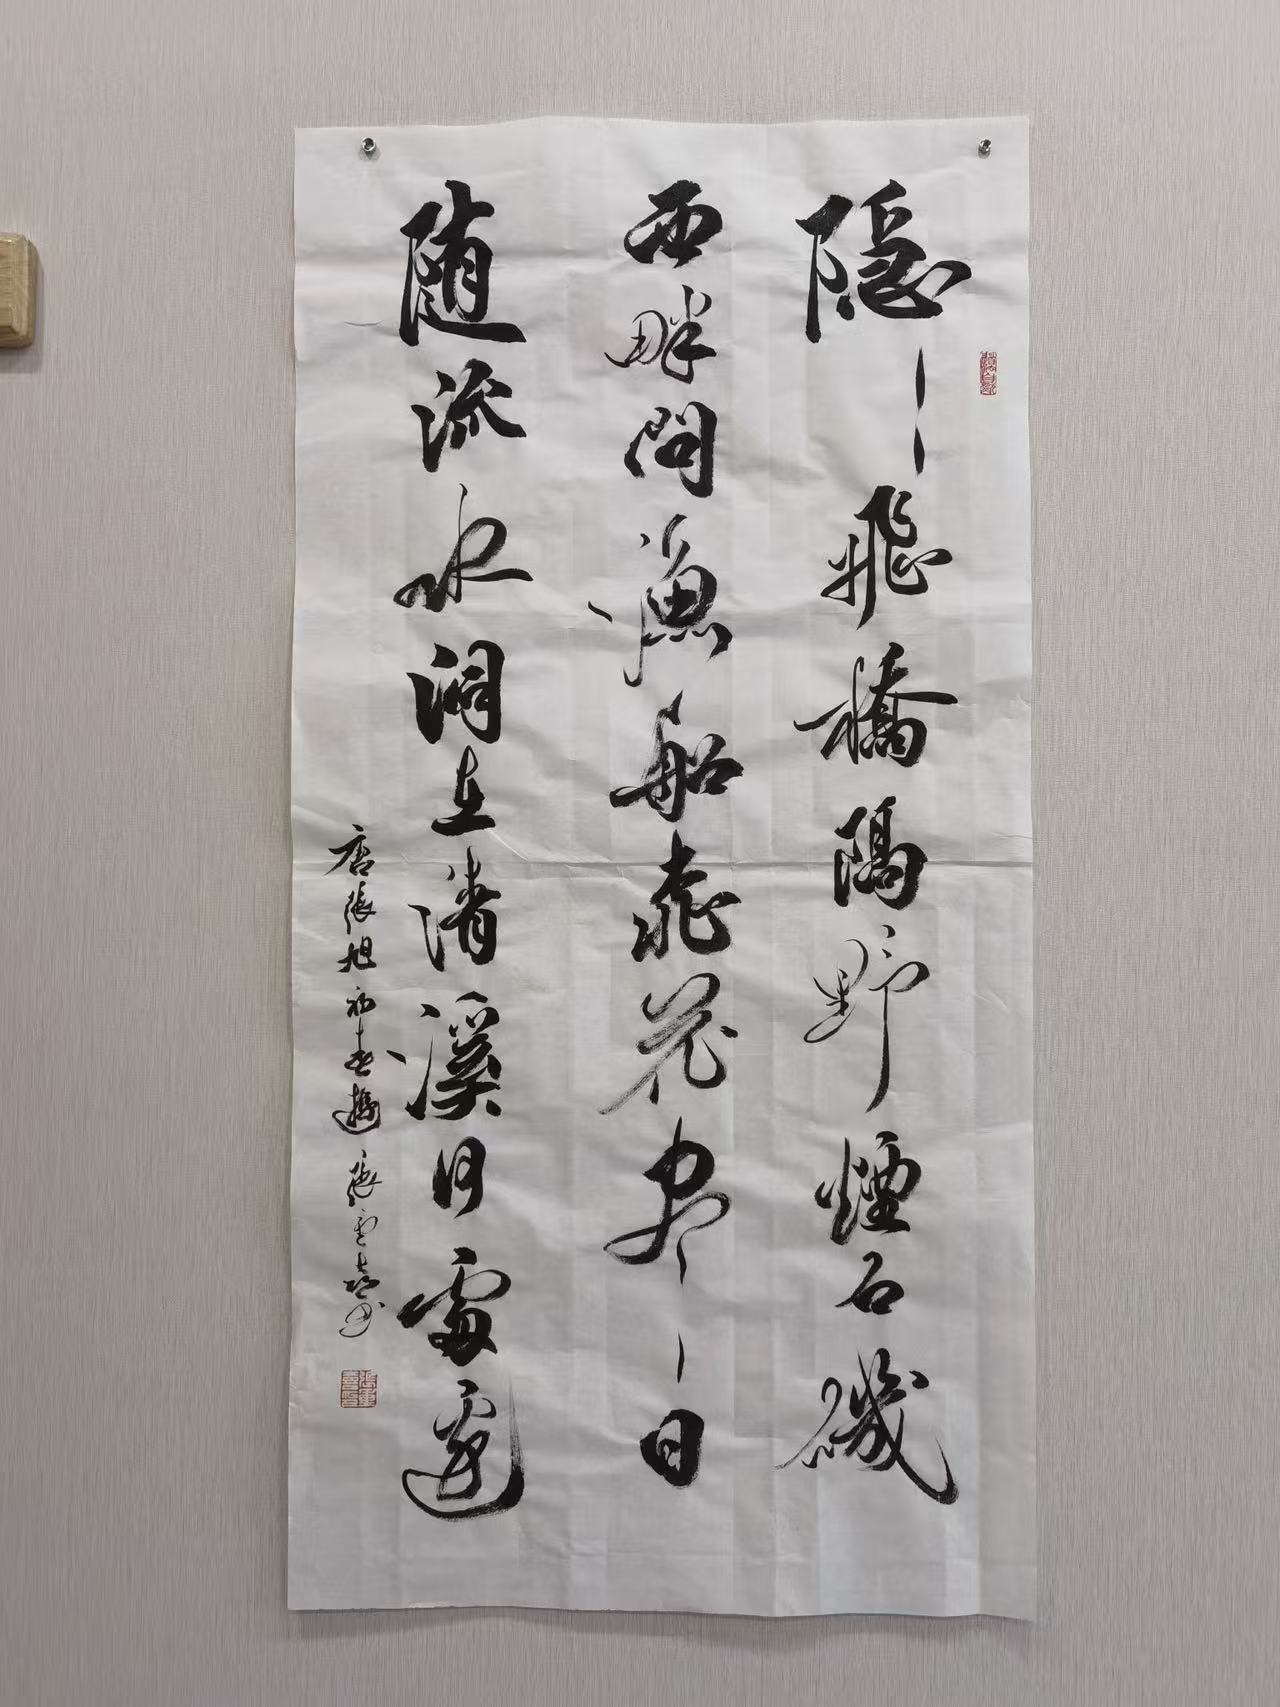 隐隐飛橋隔野煙石磯
西畔問漁船桃花尽日
随流水洞在清溪何處邊
唐張旭 初春 張書